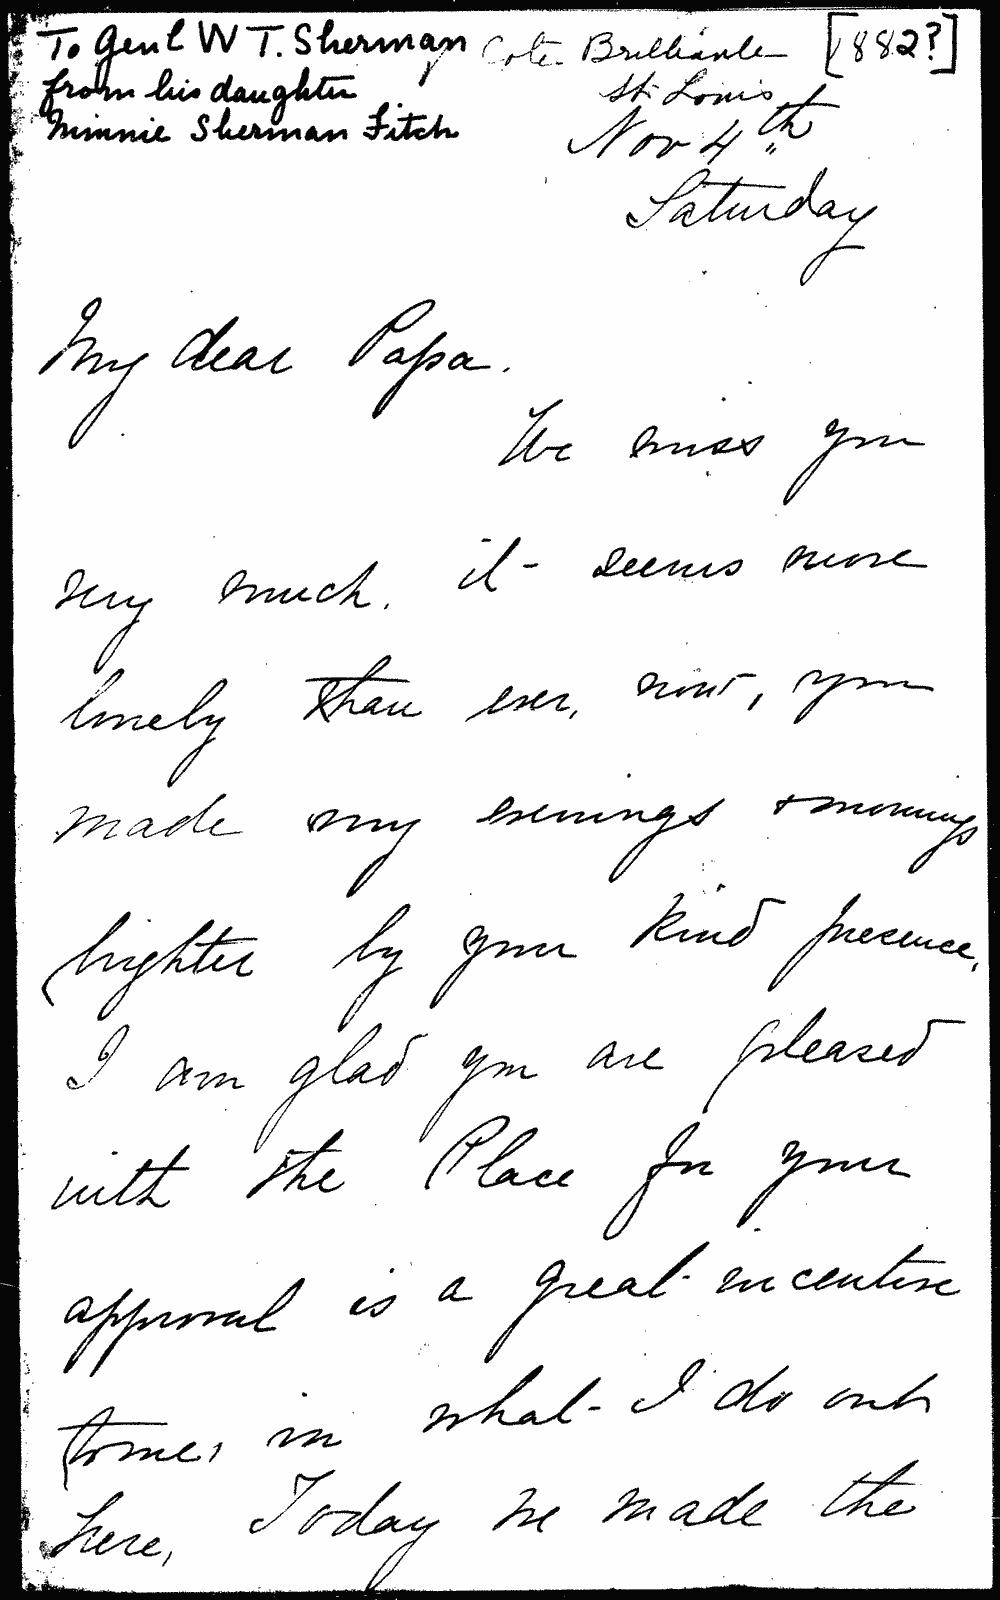 To Genl W T. Sherman
from his daughter
Minnie Sherman Fitch
Cote Brilliante [1882?]
St. Louis
Nov 4th
Saturday
My dear Papa.
We miss you
very much. it seems more
lonely than ever, now, you
made my evenings & mornings
brighter by your kind presence,
I am glad you are pleased
with the Place for your
approval is a great incentive
to me, in what I do out
here, Today we made the